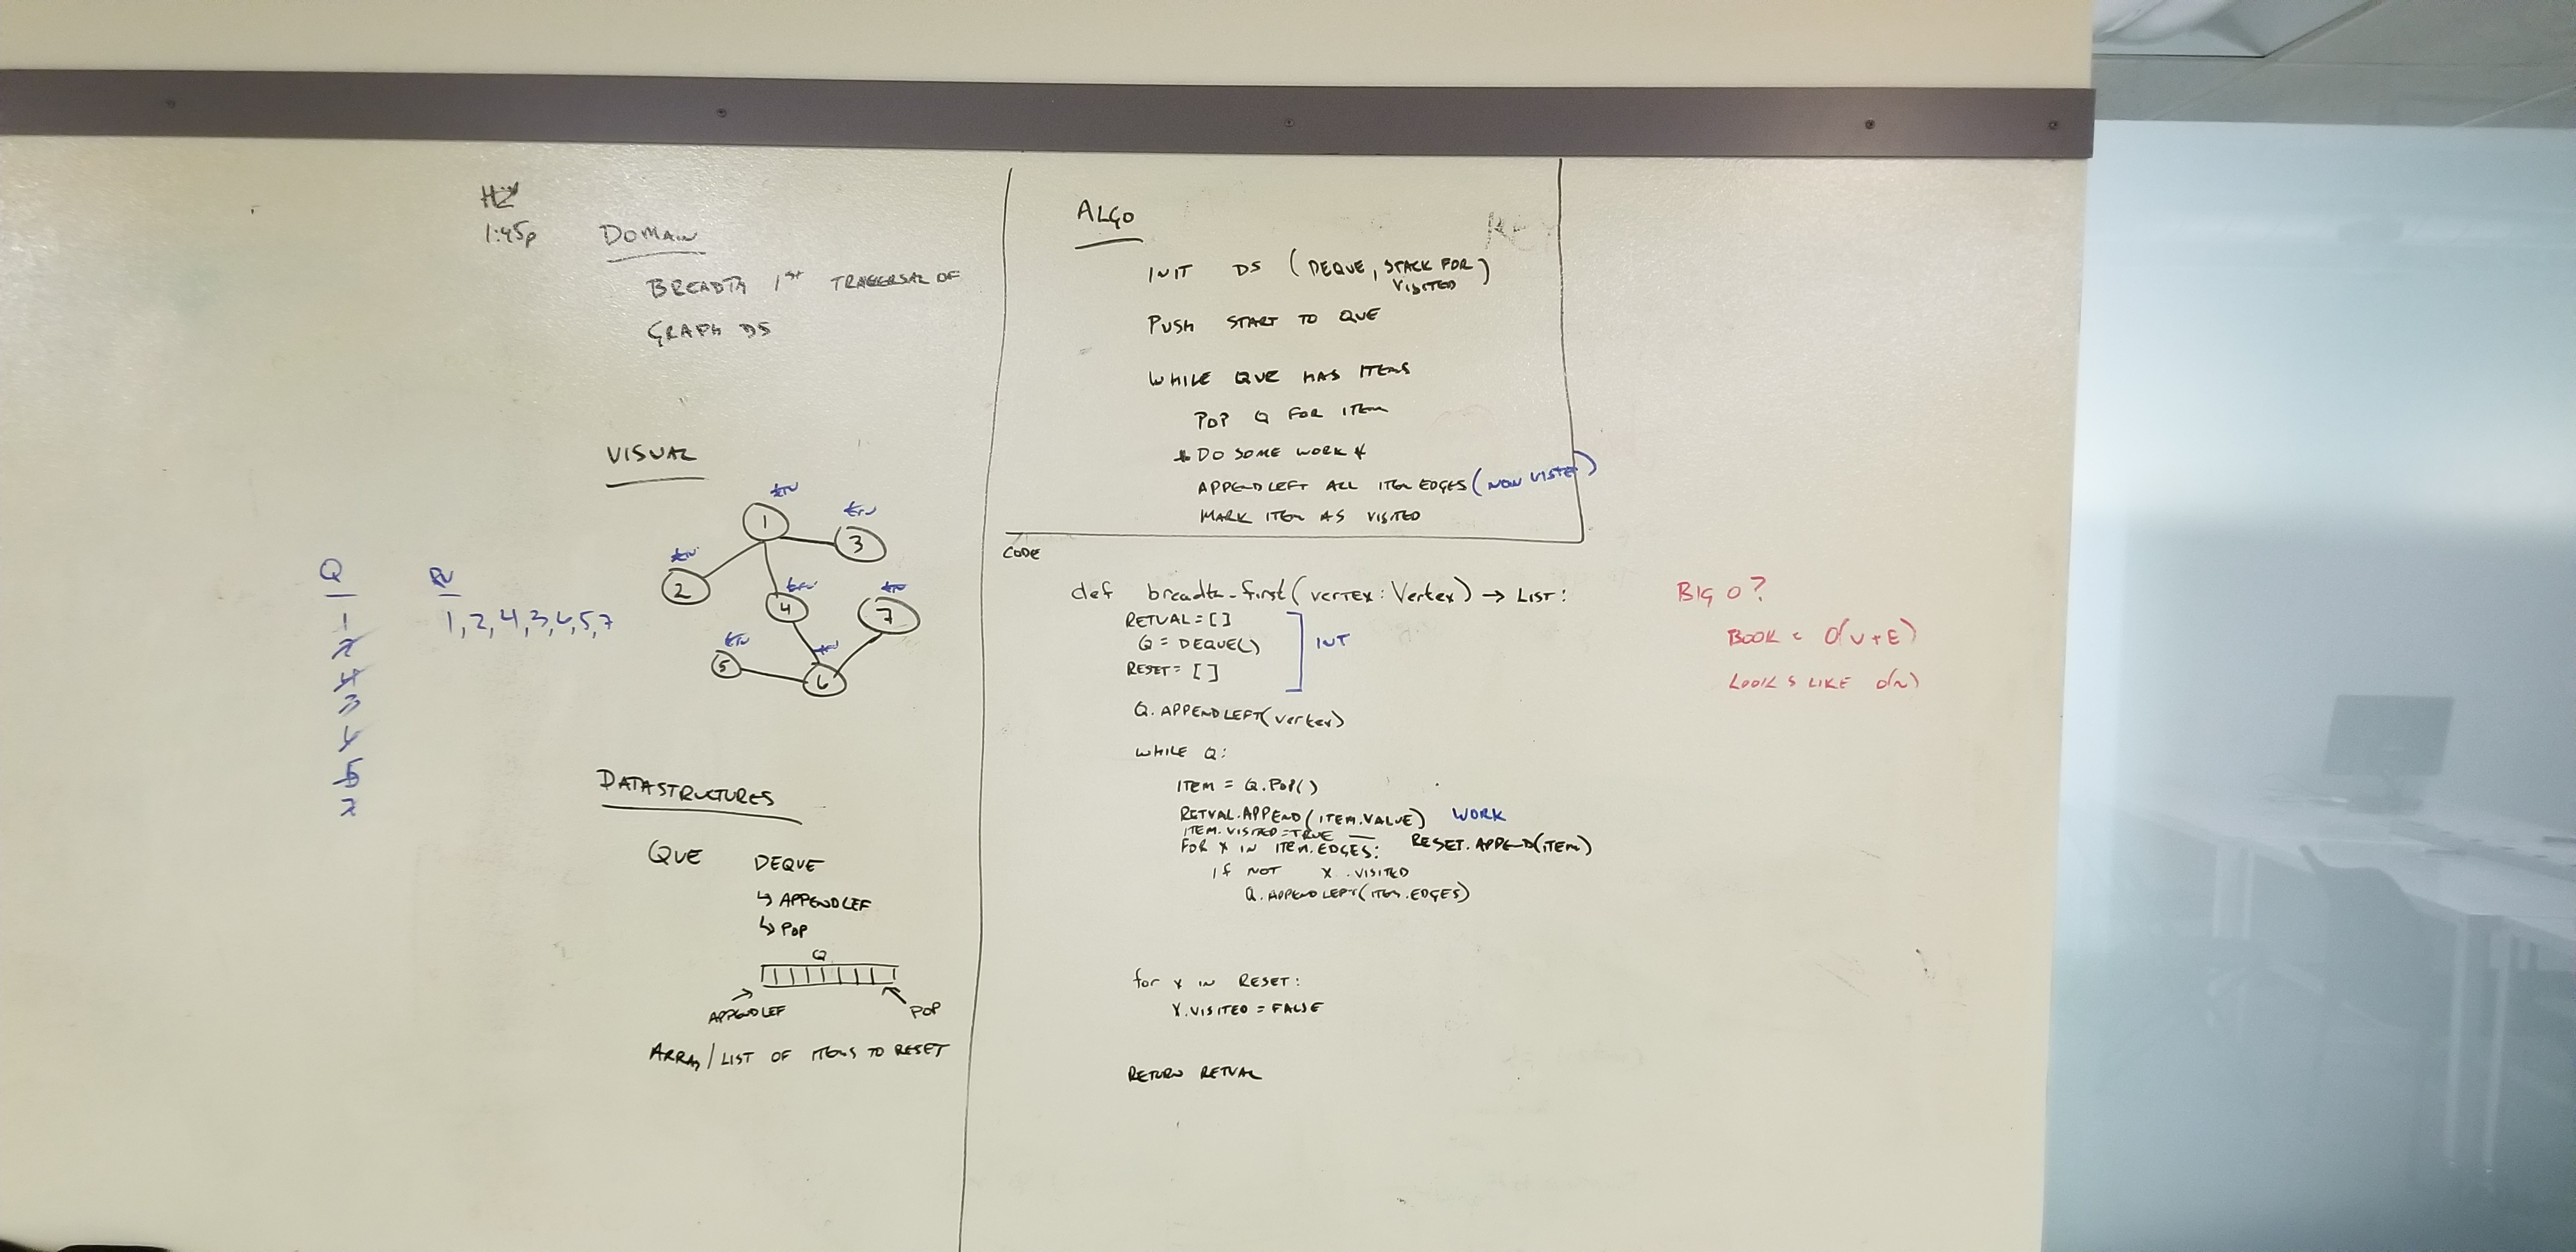 1:45p
DOMAIN
BREADTH 1ST TRAVERSAL OF
GRAPH DS
VISUAL
1
3
2
4
7
5
6
Q
RV
1
2
4
3
6
5
7
1,2,4,3,6,5,7
DATASTRUCTURES
QUE DEQUE
↳ APPENDLEF
↳ POP
Q
APPENDLEF
POP
ARRAY/LIST OF ITEMS TO RESET
ALGO
INIT DS (DEQUE, STACK FOR
VISITED)
PUSH START TO QUE
WHILE QUE HAS ITEMS
POP Q FOR ITEM
* DO SOME WORK *
APPENDLEFT ALL ITEM EDGES (NON VISTED)
MARK ITEM AS VISITED
CODE
def breadth_first(VERTEX: Vertex) → LIST:
RETVAL = []
Q = DEQUE()
RESET = []
INT
Q.APPENDLEFT(vertex)
WHILE Q:
ITEM = Q.POP()
RETVAL.APPEND(ITEM.VALUE) WORK
ITEM.VISITED=TRUE — RESET.APPEND(ITEM)
FOR X IN ITEM.EDGES:
if NOT X.VISITED
Q.APPENDLEFT(ITEM.EDGES)
for x IN RESET:
X.VISITED = FALSE
RETURN RETVAL
BIG O?
BOOK = O(V+E)
LOOKS LIKE O(N)